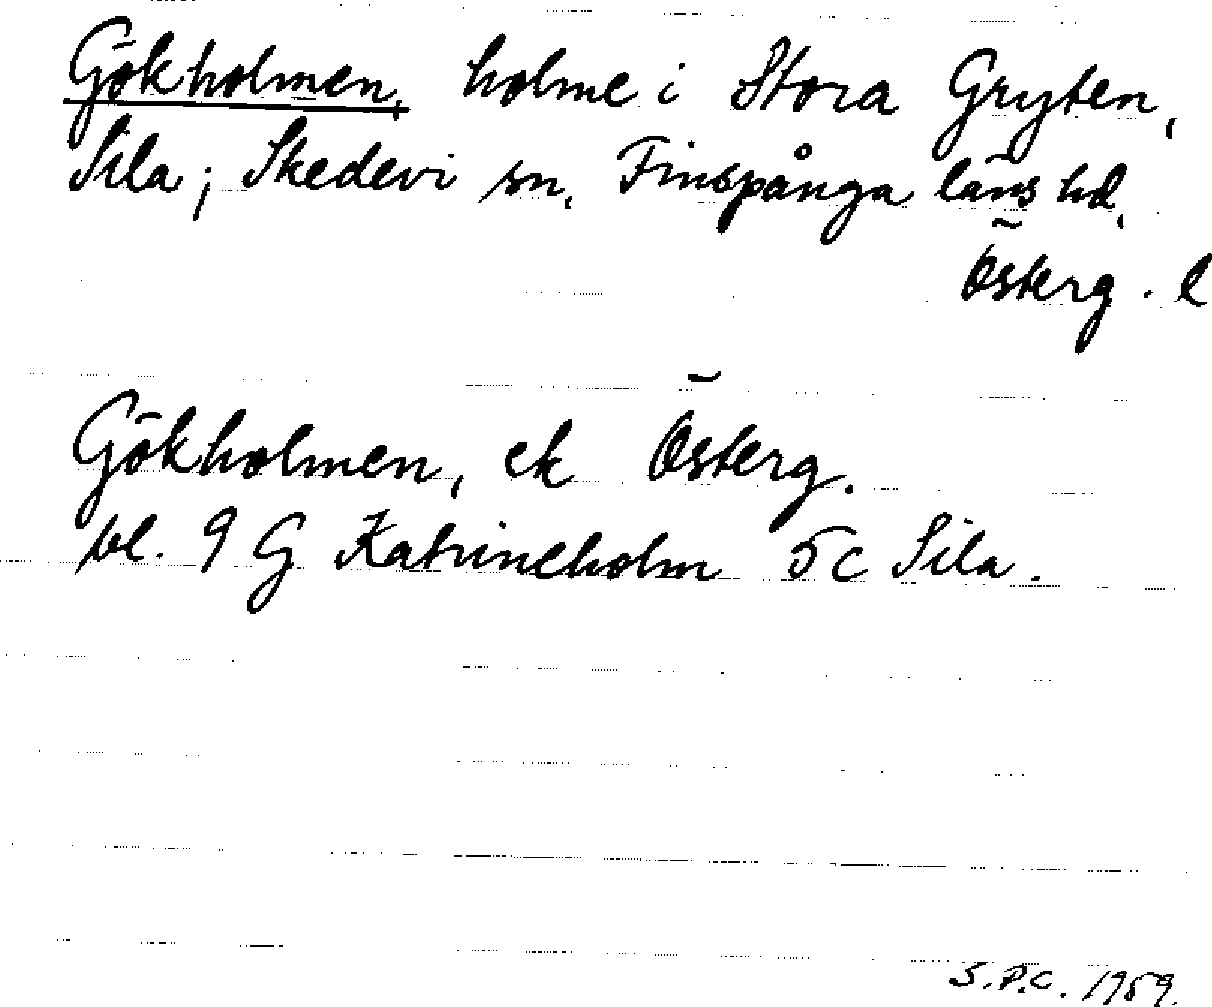 Gökholmen, holme i Stora Gryten,
Sila; Skedevi sn, Finspånga läns hd,
Österg. l
Gökholmen, ek Österg.
bl. 9 G Katrineholm 5 c Sila.
S.P.C. 1959.